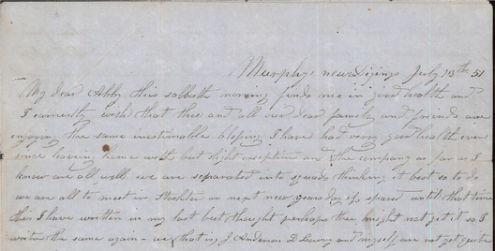 Murphy, new Digings July 13th 51
My dear Abby this sabbath morning finds me in good health and
I earnestly wish that thee and all our dear family and friends are
enjoying the same inestimable blessing I have had very good health ever
since leaving home with but slight exceptions and the company as far as I
know are all well we are separated into squads thinking it best so to do
we are all to meet in Stockton on next new years day if spared until that time
this I have written in my last but thought perhaps thee might not get it so I
write the same again - we that is J D Lowry and myself are not yet quite